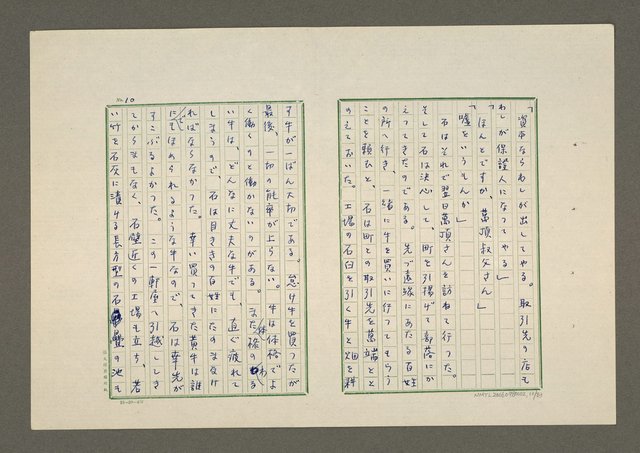 「資本ならわしが出してやる。取引先の店も
わしが保證人になつてやる」
「ほんとですが、萬頂叔父さん」
「嘘をいうもんか」
石はそれで翌日萬頂さんを訪ねて行つた。
そして石は決心して、町を引揚げて部落にか
えつてきたのである。先づ遠縁にあたる百姓
の所へ行き、一緒に牛を買いに行つてもらう
ことを頼むと、石は町との取引先を萬端とと
のえておいた。工場の石臼を引く牛と畑を耕
No. 10
す牛が一ばん大切である。怠け牛を買つたが
最後、一切の能率が上らない。牛は体格でよ
く働くのと働かないのがある。また体格のわる
い牛は、どんなに丈夫な牛でも、直ぐ疲れて
しまうので、石は目ききの百姓にたのまなけ
ればならなかつた。幸い買つてきた黄牛は誰
にでもほめられるような牛なので、石は幸先が
すこぶるよかつた。この一軒屋へ引越ししき
てからまもなく、石壁近くの工場も立ち、若
い竹を石灰に漬ける長方型の石疊の池も
NMTL20060490002_10/34